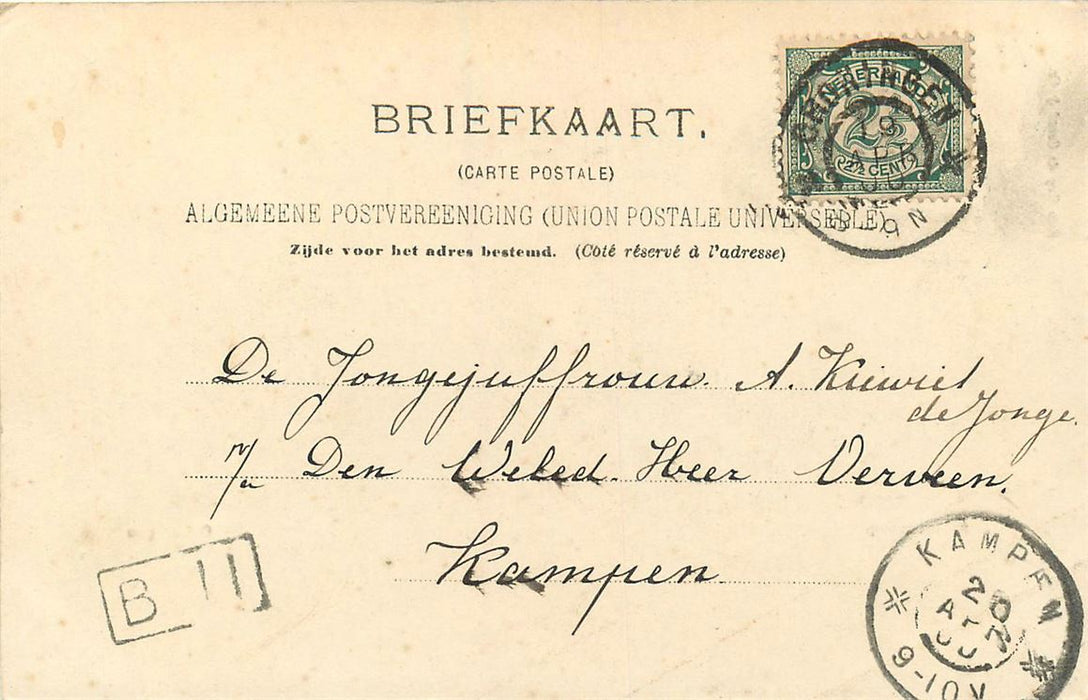 BRIEFKAART.
(CARTE POSTALE)
ALGEMEENE POSTVEREENIGING (UNION POSTALE UNIVERSELLE)
Zijde voor het adres bestemd. (Côté réservé à l'adresse)
NEDERLAND
2½
2½ CENT
GRONINGEN
19
8-9N
De Jongejuffrouw. A. Kiewiet
de Jonge.
Den Weled. Heer Verveen.
Kampen
B II
KAMPEN
20
9-10V